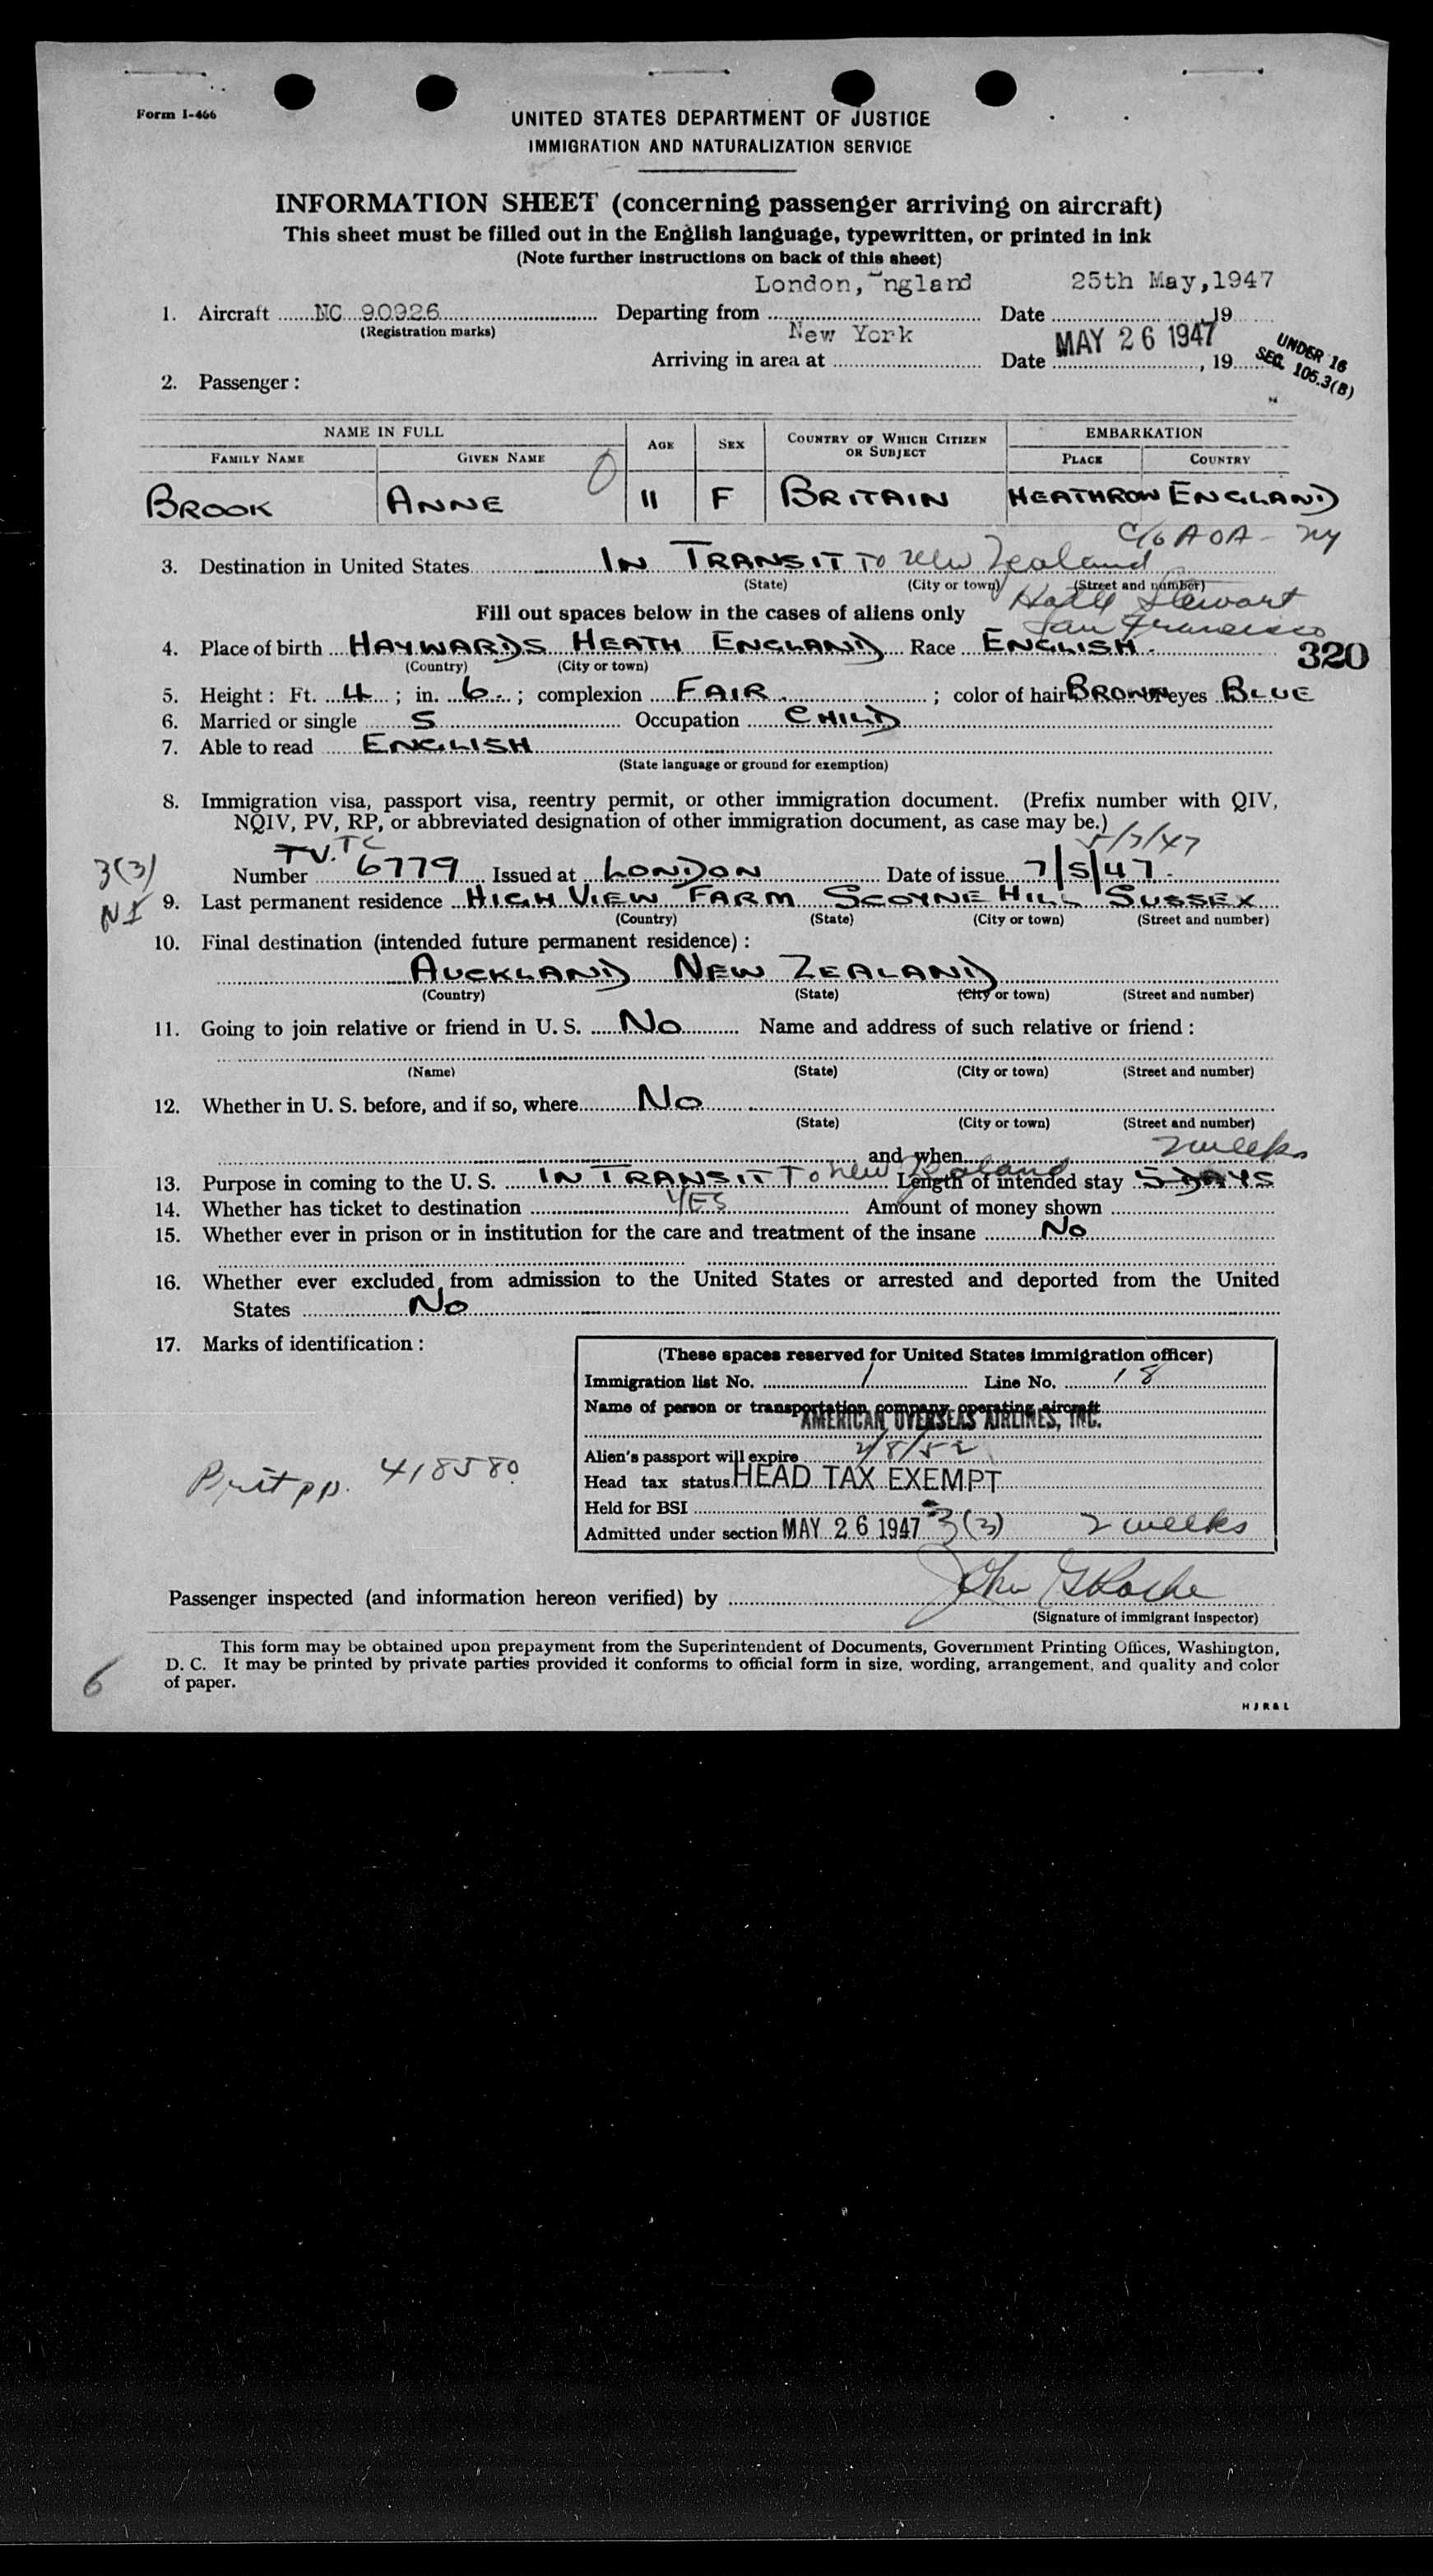 Form I-466
UNITED STATES DEPARTMENT OF JUSTICE
IMMIGRATION AND NATURALIZATION SERVICE
INFORMATION SHEET (concerning passenger arriving on aircraft)
This sheet must be filled out in the English language, typewritten, or printed in ink
(Note further instructions on back of this sheet)
London, ngland 25th May,1947
1. Aircraft NC 90926 Departing from Date , 19
(Registration marks)
New York MAY 26 1947
Arriving in area at Date , 19
UNDER 16
SEC. 105.3(B)
2. Passenger:
NAME IN FULL AGE SEX COUNTRY OF WHICH CITIZEN OR SUBJECT EMBARKATION
FAMILY NAME GIVEN NAME PLACE COUNTRY
BROOK ANNE 11 F BRITAIN HEATHROW ENGLAND
C/o AOA - NY
3. Destination in United States IN TRANSIT TO New Zealand
(State) (City or town) (Street and number)
Hotel Stewart
San Francisco
Fill out spaces below in the cases of aliens only
4. Place of birth HAYWARDS HEATH ENGLAND Race ENGLISH.
320
(Country) (City or town)
5. Height: Ft. 4; in. 6; complexion FAIR; color of hair BROWN eyes BLUE
6. Married or single S Occupation CHILD
7. Able to read ENGLISH
(State language or ground for exemption)
8. Immigration visa, passport visa, reentry permit, or other immigration document. (Prefix number with QIV,
NQIV, PV, RP, or abbreviated designation of other immigration document, as case may be.)
TV. TC 5/7/47
3(3)
NI
Number 6779 Issued at LONDON Date of issue 7/5/47.
9. Last permanent residence HIGH VIEW FARM SCOYNE HILL SUSSEX
(Country) (State) (City or town) (Street and number)
10. Final destination (intended future permanent residence):
AUCKLAND NEW ZEALAND
(Country) (State) (City or town) (Street and number)
11. Going to join relative or friend in U. S. NO Name and address of such relative or friend:
(Name) (State) (City or town) (Street and number)
12. Whether in U. S. before, and if so, where NO
(State) (City or town) (Street and number)
and when 2 weeks
13. Purpose in coming to the U. S. IN TRANSIT To New Zealand Length of intended stay 5 DAYS
14. Whether has ticket to destination YES Amount of money shown
15. Whether ever in prison or in institution for the care and treatment of the insane NO
16. Whether ever excluded from admission to the United States or arrested and deported from the United
States NO
17. Marks of identification:
(These spaces reserved for United States immigration officer)
Immigration list No. 1 Line No. 18
Name of person or transportation company operating aircraft
AMERICAN OVERSEAS AIRLINES, INC.
Alien's passport will expire 2/8/52
Head tax status HEAD TAX EXEMPT
Held for BSI
Admitted under section MAY 26 1947 3(3) 2 weeks
Brit pp. 418580
Passenger inspected (and information hereon verified) by John G Roche
(Signature of immigrant inspector)
This form may be obtained upon prepayment from the Superintendent of Documents, Government Printing Offices, Washington,
D. C. It may be printed by private parties provided it conforms to official form in size, wording, arrangement, and quality and color
of paper.
6
HJR&L